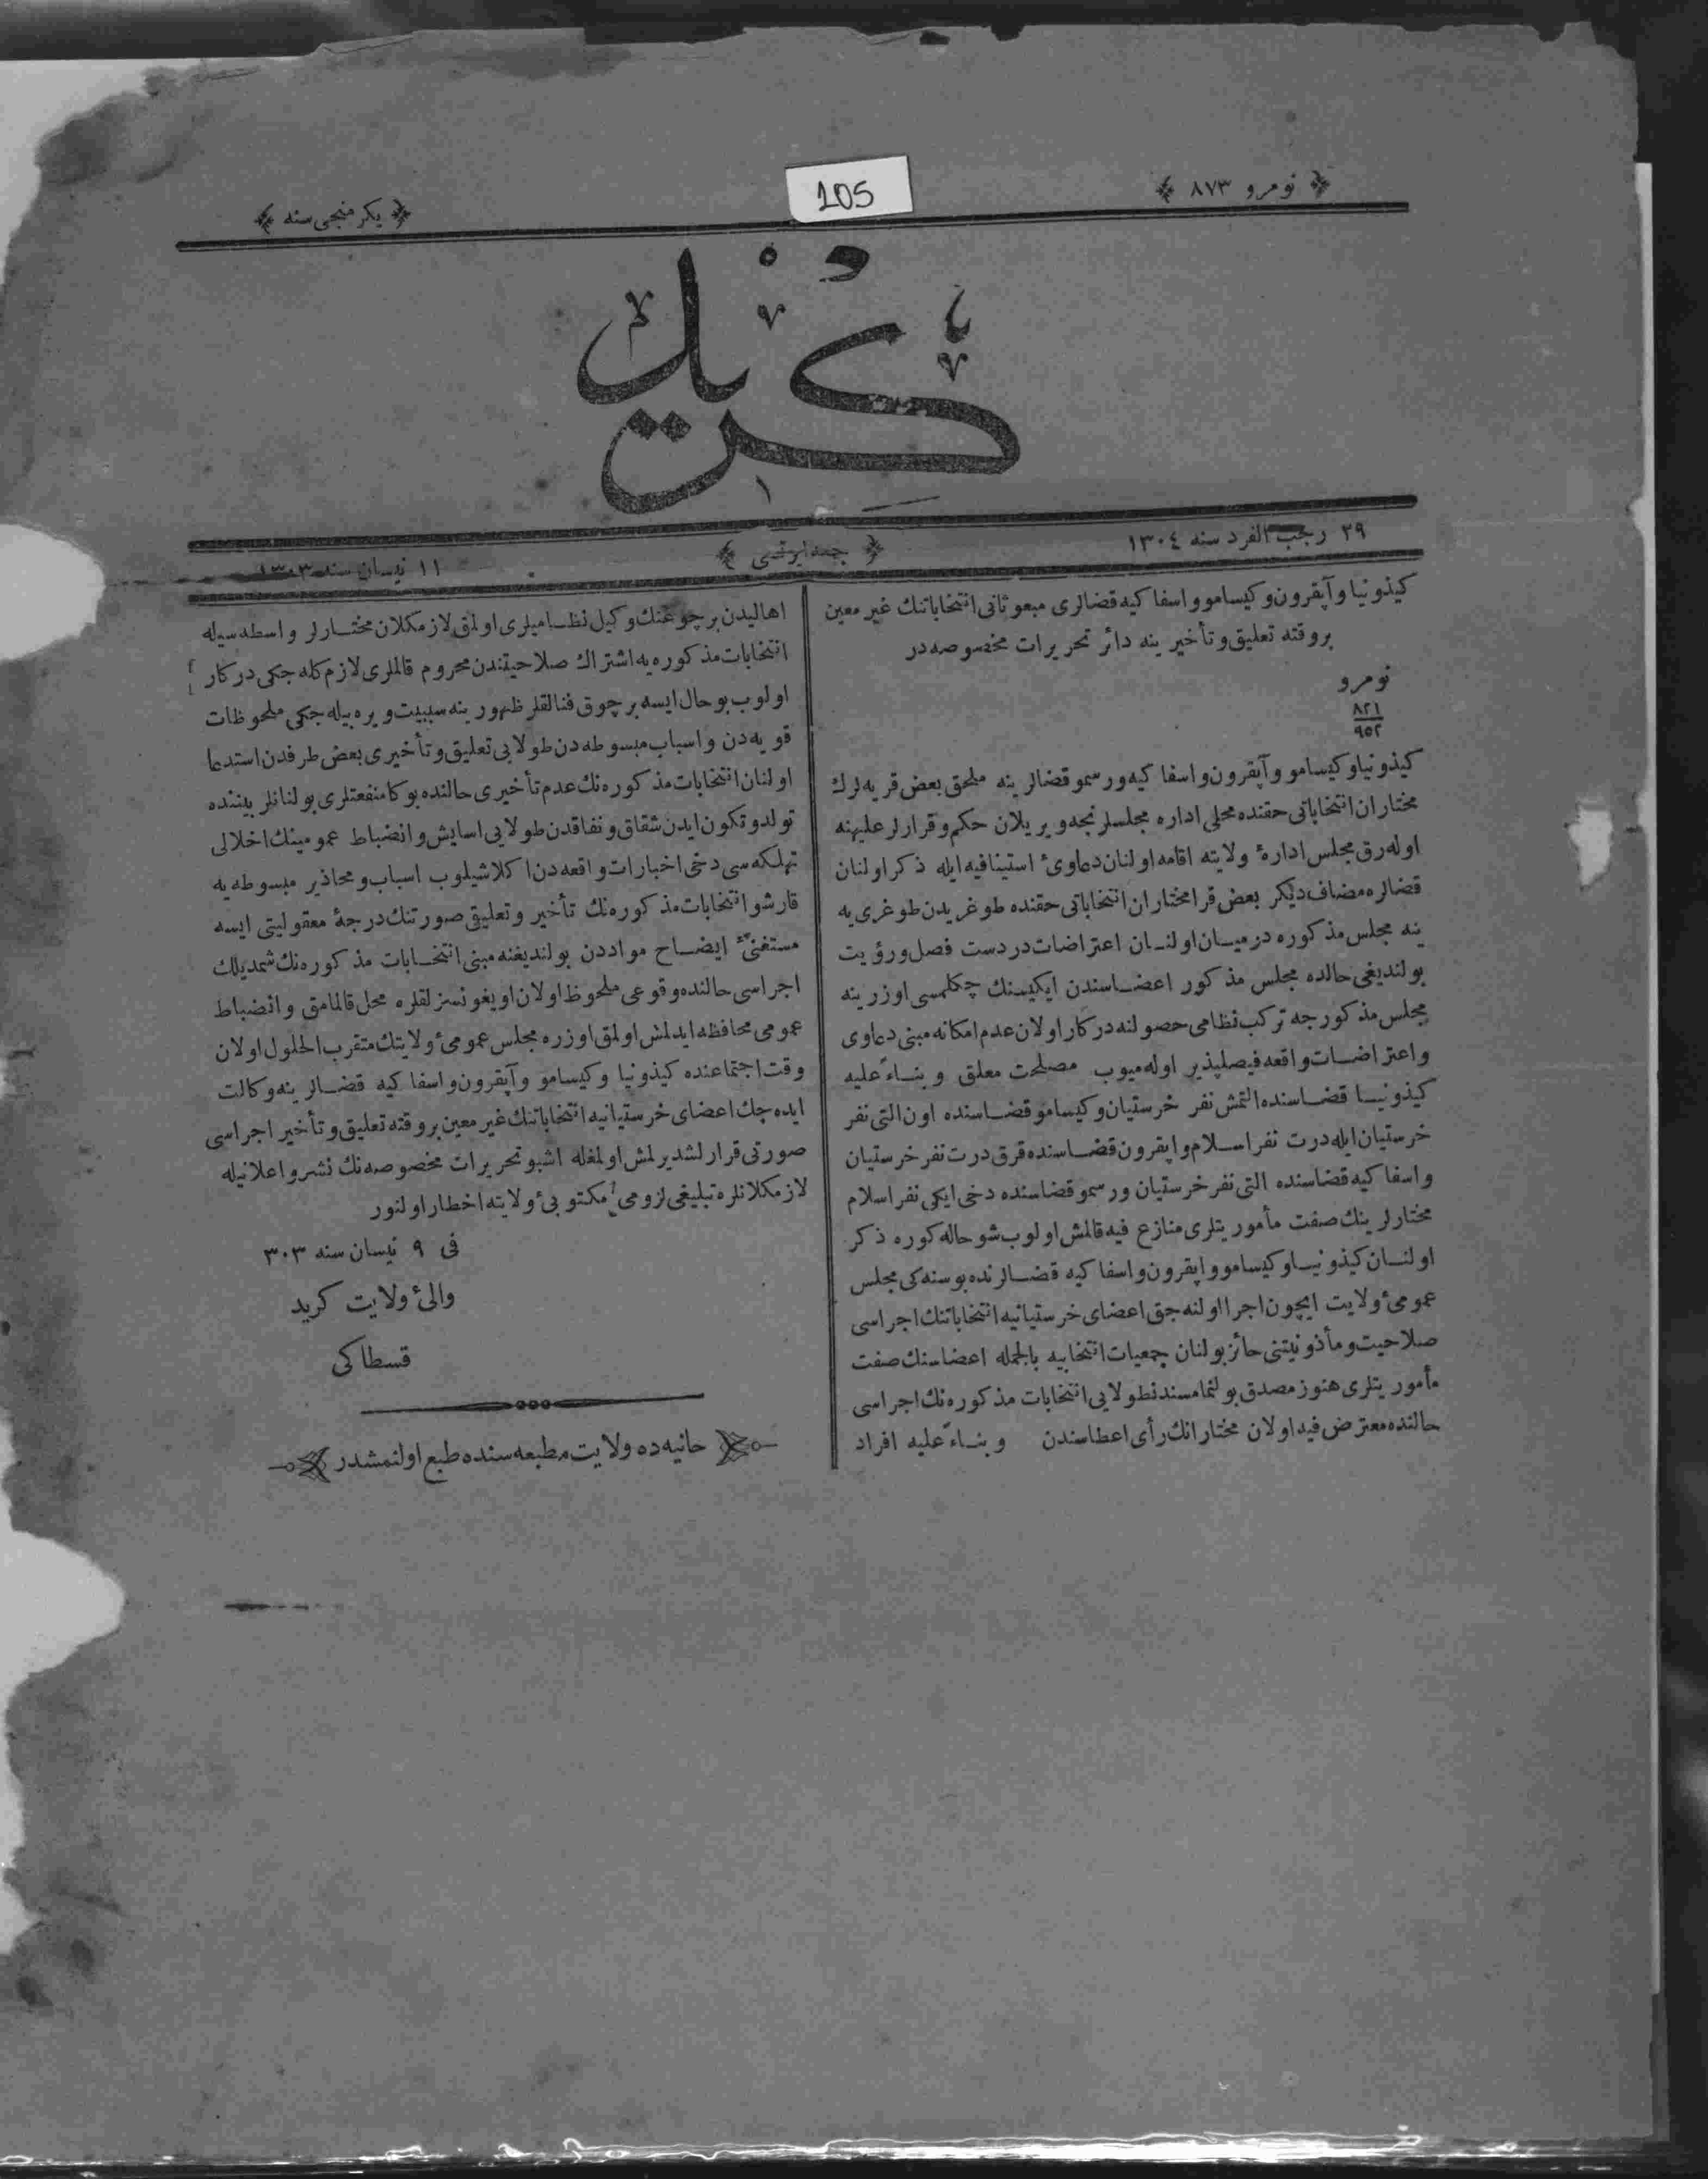 نومرو ٨٧٣
105
يكرمنجى سنه
كريد
٢٩ رجب الفرد سنه ١٣٠٤
جمعه ايرتسى
١١ نيسان سنه ١٣٠٣
كيذونيا وآپقرون وكيسامو واسفاكيه قضالرى مبعوثانى انتخاباتنك غير معين
بروقته تعليق وتأخيرينه دائر تحريرات مخصوصه در
نومرو
٨٢١
٩٥٢
كيذونيا وكيسامو وآپقرون واسفاكيه ورسمو قضالرينه ملحق بعض قريه لرك
مختاران انتخاباتى حقنده محلى اداره مجلسلرنجه ويريلان حكم وقرارلر عليهنه
اوله رق مجلس ادارهٔ ولايته اقامه اولنان دعاوىٔ استينافيه ايله ذكر اولنان
قضالره مضاف ديكر بعض قرا مختاران انتخاباتى حقنده طوغريدن طوغرى يه
ينه مجلس مذكوره درميان اولنان اعتراضات دردست فصل ورؤيت
بولنديغى حالده مجلس مذكور اعضاسندن ايكيسنك چكلمسى اوزرينه
مجلس مذكورجه تركب نظامى حصولنه دركار اولان عدم امكانه مبنى دعاوى
واعتراضات واقعه فيصلپذير اوله ميوب مصلحت معلق وبناءً عليه
كيذونيا قضاسنده التمش نفر خرستيان وكيسامو قضاسنده اون التى نفر
خرستيان ايله درت نفر اسلام وآپقرون قضاسنده قرق درت نفر خرستيان
واسفاكيه قضاسنده التى نفر خرستيان ورسمو قضاسنده دخى ايكى نفر اسلام
مختارلرينك صفت مأموريتلرى منازع فيه قالمش اولوب شو حاله كوره ذكر
اولنان كيذونيا وكيسامو وآپقرون واسفاكيه قضالرنده بو سنه كى مجلس
عمومىٔ ولايت ايچون اجرا اولنه جق اعضاى خرستيانيه انتخاباتنك اجراسى
صلاحيت ومأذونيتنى حائز بولنان جمعيات انتخابيه بالجمله اعضاسنك صفت
مأموريتلرى هنوز مصدق بولنمامسندنطولايى انتخابات مذكوره نك اجراسى
حالنده معترض فيه اولان مختارانك رأى اعطاسندن وبناءً عليه افراد
اهاليدن برچوغنك وكيل نظاميلرى اولمق لازمكلان مختارلر واسطه سيله
انتخابات مذكوره يه اشتراك صلاحيتندن محروم قالملرى لازم كله جكى دركار
اولوب بو حال ايسه برچوق فنالقلر ظهورينه سببيت ويره بيله جكى ملحوظات
قويه دن واسباب مبسوطه دن طولايى تعليق وتأخيرى بعض طرفدن استدعا
اولنان انتخابات مذكوره نك عدم تأخيرى حالنده بوكا منفعتلرى بولنانلر بيننده
تولد وتكون ايدن شقاق ونفاقدن طولايى اسايش وانضباط عموميتك اخلالى
تهلكه سى دخى اخبارات واقعه دن اكلاشيلوب اسباب ومحاذير مبسوطه يه
قارشو انتخابات مذكوره نك تأخير وتعليق صورتنك درجهٔ معقوليتى ايسه
مستغنىٔ ايضاح مواددن بولنديغنه مبنى انتخابات مذكوره نك شمديلك
اجراسى حالنده وقوعى ملحوظ اولان اويغونسزلقلره محل قالمامق وانضباط
عمومى محافظه ايدلمش اولمق اوزره مجلس عمومىٔ ولايتك متقرب الحلول اولان
وقت اجتماعنده كيذونيا وكيسامو وآپقرون واسفاكيه قضالرينه وكالت
ايده جك اعضاى خرستيانيه انتخاباتنك غير معين بروقته تعليق وتأخير اجراسى
صورتى قرارلشديرلمش اولمغله اشبو تحريرات مخصوصه نك نشر واعلانيله
لازمكلانلره تبليغى لزومى مكتوبىٔ ولايته اخطار اولنور
فى ٩ نيسان سنه ٣٠٣
والىٔ ولايت كريد
قسطاكى
حانيه ده ولايت مطبعه سنده طبع اولنمشدر